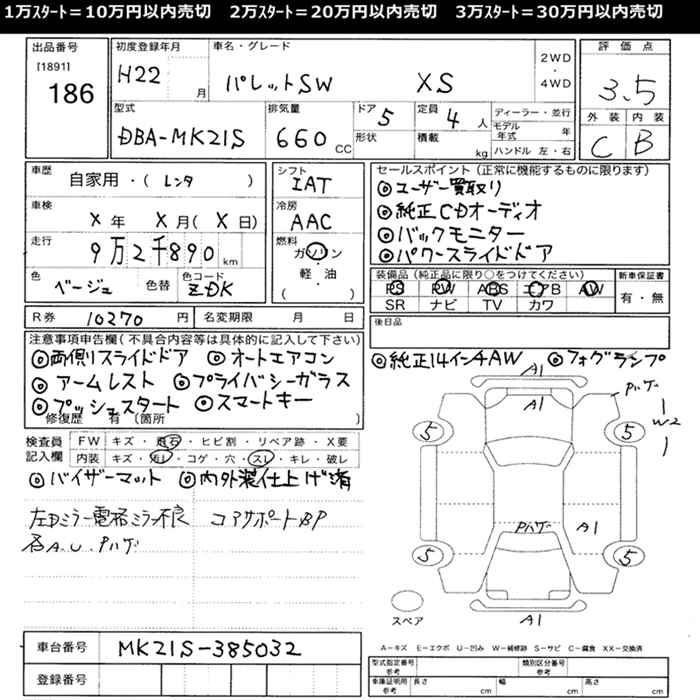 1万ｽﾀｰﾄ＝10万円以内売切　2万ｽﾀｰﾄ＝20万円以内売切　3万ｽﾀｰﾄ＝30万円以内売切
出品番号
[1891]
186
初度登録年月
H22
月
車名・グレード
パレットSW XS
2WD
・
4WD
評価点
3.5
外装 内装
C B
型式
DBA-MK21S
排気量
660 CC
ドア 5
形状
定員 4 人
積載 kg
ディーラー・並行
モデル年式 年
ハンドル 左・右
車歴
自家用・(レンタ )
車検
X年 X月(X日)
走行
9万2千890km
色
ベージュ
色替
色コード
ZDK
シフト
IAT
冷房
AAC
燃料
ガソリン
軽・油
( )
セールスポイント（正常に機能するものに限ります）
◎ユーザー買取り
◎純正CDオーディオ
◎バックモニター
◎パワースライドドア
装備品（純正品に限り○をつけてください）
PS PW ABS エアB AW
SR ナビ TV カワ
新車保証書
有・無
R券 10270 円 名変期限 月 日
後日品
注意事項申告欄（不具合内容等は具体的に記入して下さい）
◎両側スライドドア ◎オートエアコン
◎アームレスト ◎プライバシーガラス
◎プッシュスタート ◎スマートキー
修復歴 有（箇所 ）
◎純正14インチAW ◎フォグランプ
検査員記入欄
FW キズ・飛石・ヒビ割・リペア跡・X要
内装 キズ・汚レ・コゲ・穴・スレ・キレ・破レ
◎バイザーマット ◎内外装仕上げ済
左Dミラー電格ミラー不良 コアサポートBP
A.U.Pハゲ
A1
A1
Pハゲ
W2
5 5
Pハゲ A1
5 5
スペア
A1
車台番号 MK21S-385032
登録番号
A－キズ E－エクボ U－凹み W－補修跡 S－サビ C－腐食 XX－交換済
型式指定番号 参考
類別区分番号 参考
車庫証明用 参考 長さ cm 幅 cm 高さ cm